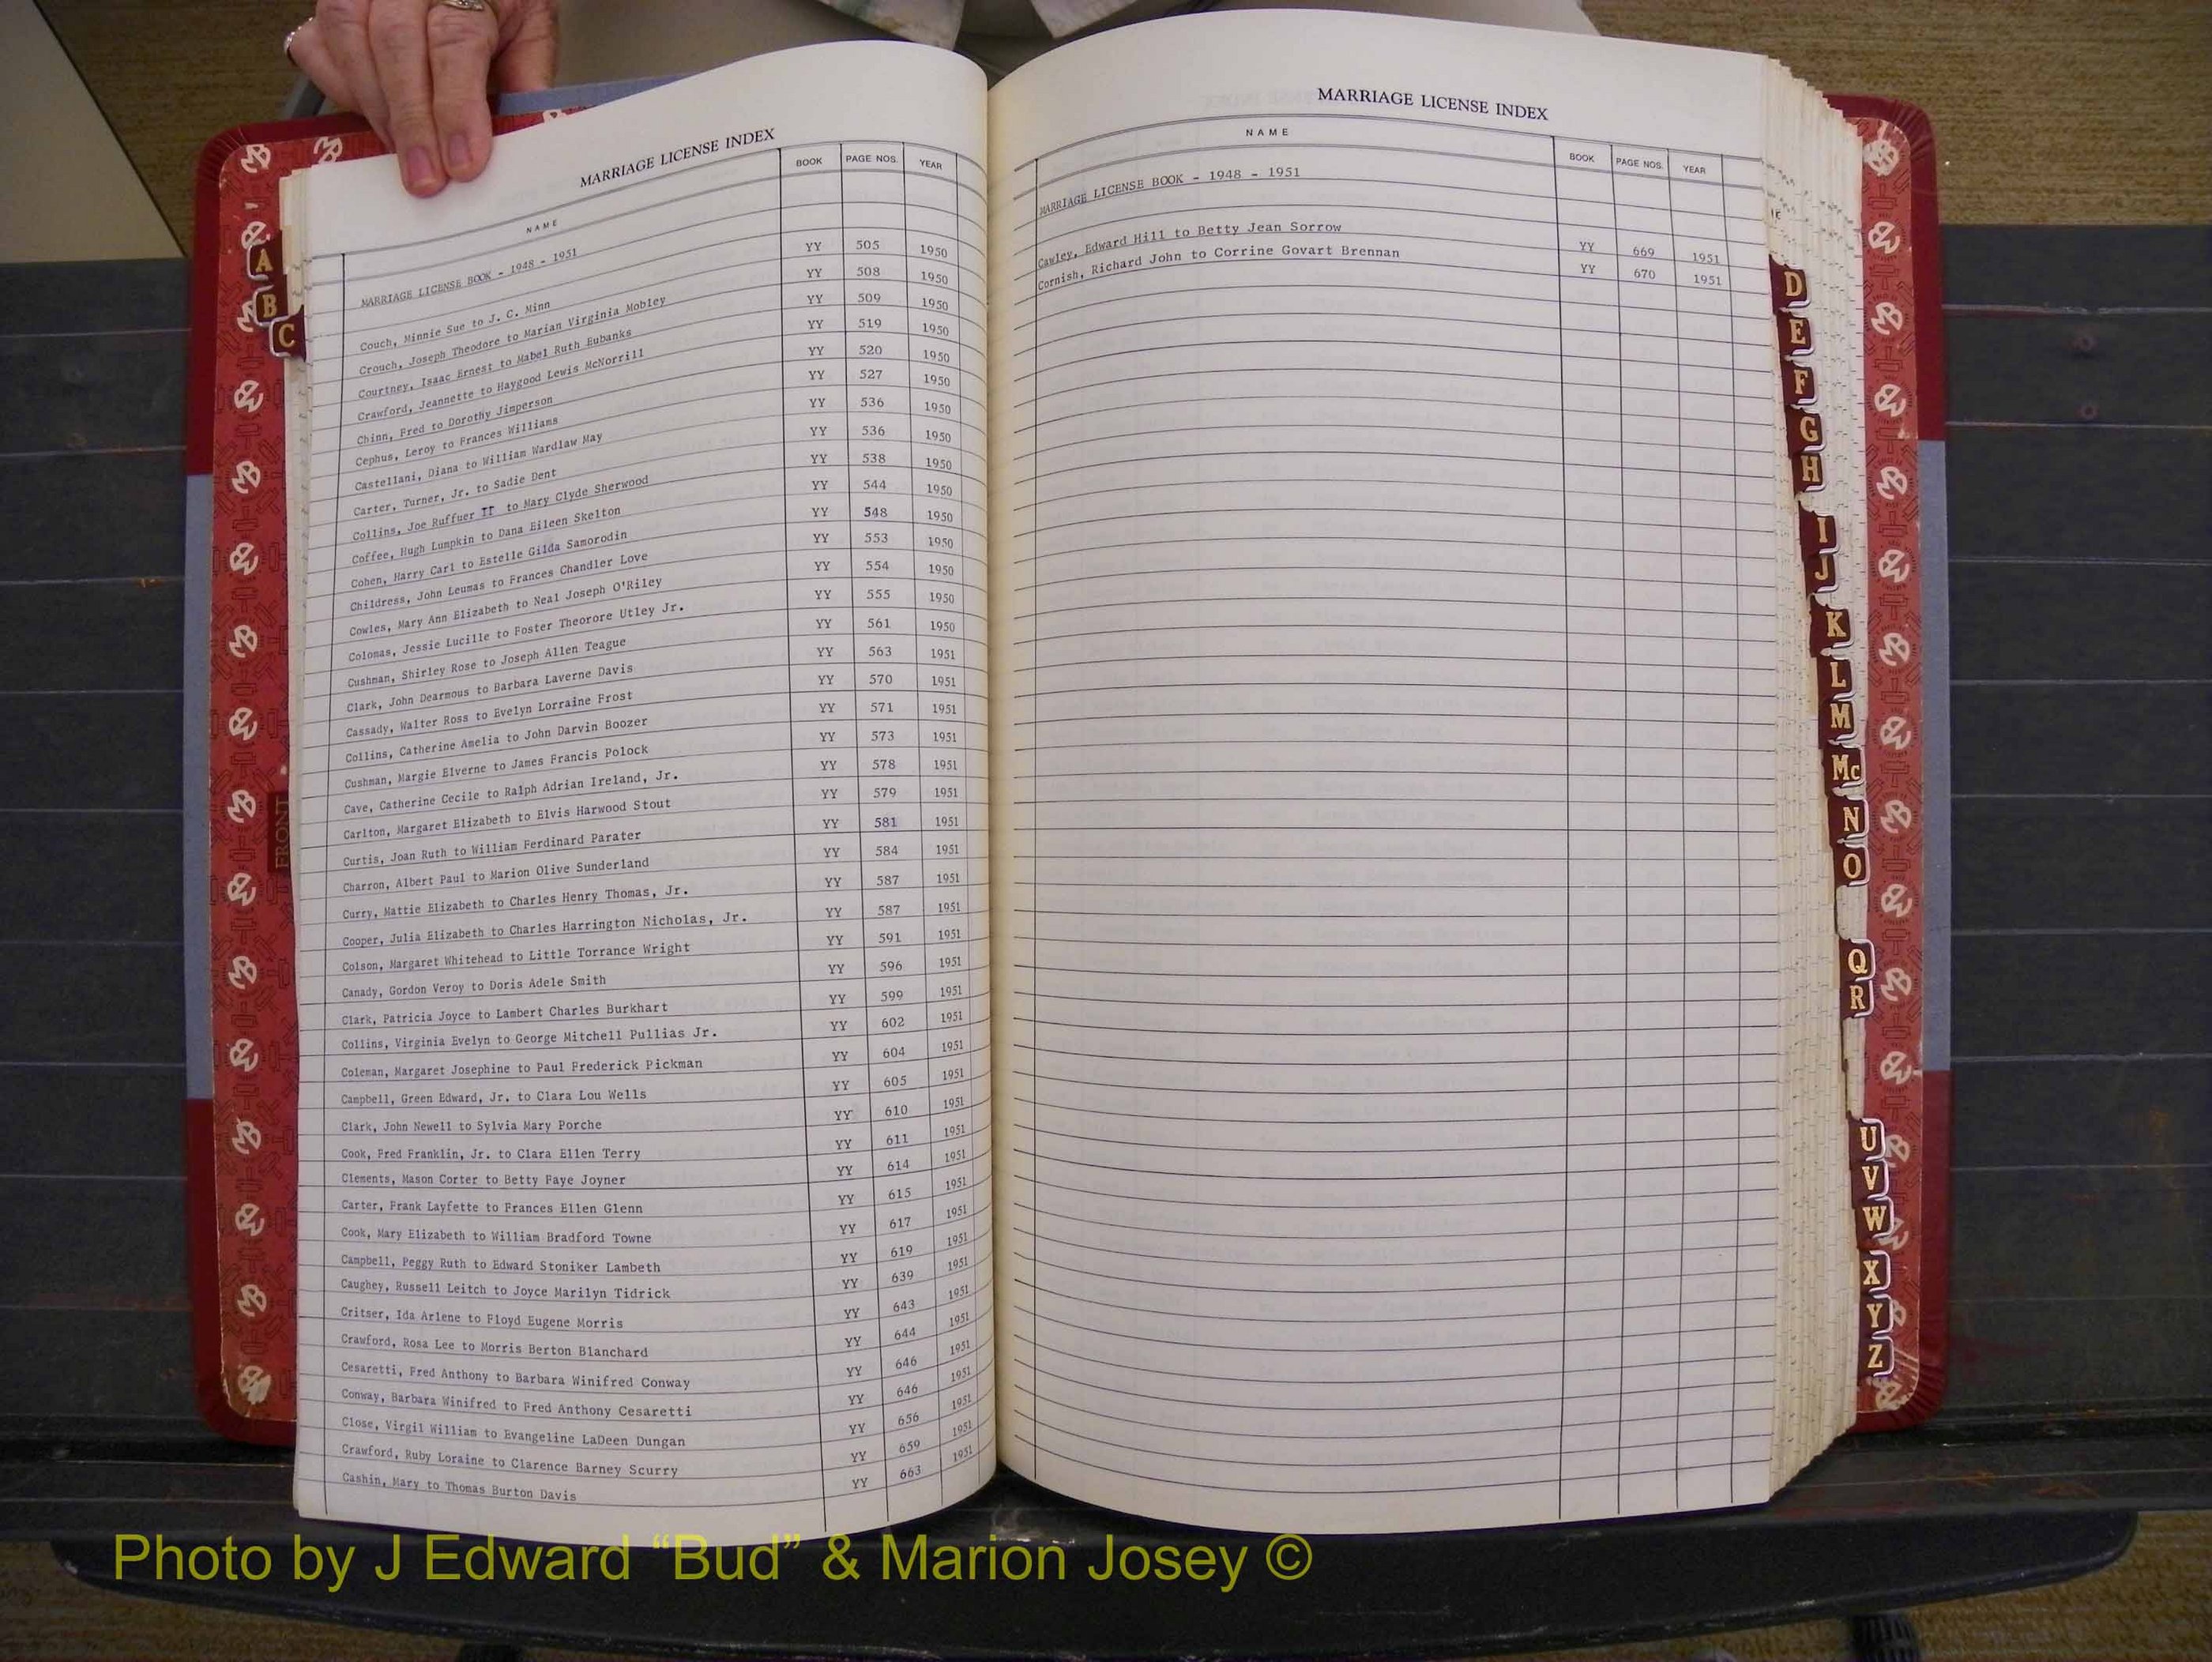 MARRIAGE LICENSE INDEX
NAME BOOK PAGE NOS. YEAR
MARRIAGE LICENSE BOOK - 1948 - 1951
Couch, Minnie Sue to J. C. Minn YY 505 1950
Crouch, Joseph Theodore to Marian Virginia Mobley YY 508 1950
Courtney, Isaac Ernest to Mabel Ruth Eubanks YY 509 1950
Crawford, Jeannette to Haygood Lewis McNorrill YY 519 1950
Chinn, Fred to Dorothy Jimperson YY 520 1950
Cephus, Leroy to Frances Williams YY 527 1950
Castellani, Diana to William Wardlaw May YY 536 1950
Carter, Turner, Jr. to Sadie Dent YY 536 1950
Collins, Joe Ruffuer II to Mary Clyde Sherwood YY 538 1950
Coffee, Hugh Lumpkin to Dana Eileen Skelton YY 544 1950
Cohen, Harry Carl to Estelle Gilda Samorodin YY 548 1950
Childress, John Leumas to Frances Chandler Love YY 553 1950
Cowles, Mary Ann Elizabeth to Neal Joseph O'Riley YY 554 1950
Colomas, Jessie Lucille to Foster Theorore Utley Jr. YY 555 1950
Cushman, Shirley Rose to Joseph Allen Teague YY 561 1950
Clark, John Dearmous to Barbara Laverne Davis YY 563 1951
Cassady, Walter Ross to Evelyn Lorraine Frost YY 570 1951
Collins, Catherine Amelia to John Darvin Boozer YY 571 1951
Cushman, Margie Elverne to James Francis Polock YY 573 1951
Cave, Catherine Cecile to Ralph Adrian Ireland, Jr. YY 578 1951
Carlton, Margaret Elizabeth to Elvis Harwood Stout YY 579 1951
Curtis, Joan Ruth to William Ferdinard Parater YY 581 1951
Charron, Albert Paul to Marion Olive Sunderland YY 584 1951
Curry, Mattie Elizabeth to Charles Henry Thomas, Jr. YY 587 1951
Cooper, Julia Elizabeth to Charles Harrington Nicholas, Jr. YY 587 1951
Colson, Margaret Whitehead to Little Torrance Wright YY 591 1951
Canady, Gordon Veroy to Doris Adele Smith YY 596 1951
Clark, Patricia Joyce to Lambert Charles Burkhart YY 599 1951
Collins, Virginia Evelyn to George Mitchell Pullias Jr. YY 602 1951
Coleman, Margaret Josephine to Paul Frederick Pickman YY 604 1951
Campbell, Green Edward, Jr. to Clara Lou Wells YY 605 1951
Clark, John Newell to Sylvia Mary Porche YY 610 1951
Cook, Fred Franklin, Jr. to Clara Ellen Terry YY 611 1951
Clements, Mason Corter to Betty Faye Joyner YY 614 1951
Carter, Frank Layfette to Frances Ellen Glenn YY 615 1951
Cook, Mary Elizabeth to William Bradford Towne YY 617 1951
Campbell, Peggy Ruth to Edward Stoniker Lambeth YY 619 1951
Caughey, Russell Leitch to Joyce Marilyn Tidrick YY 639 1951
Critser, Ida Arlene to Floyd Eugene Morris YY 643 1951
Crawford, Rosa Lee to Morris Berton Blanchard YY 644 1951
Cesaretti, Fred Anthony to Barbara Winifred Conway YY 646 1951
Conway, Barbara Winifred to Fred Anthony Cesaretti YY 646 1951
Close, Virgil William to Evangeline LaDeen Dungan YY 656 1951
Crawford, Ruby Loraine to Clarence Barney Scurry YY 659 1951
Cashin, Mary to Thomas Burton Davis YY 663 1951
MARRIAGE LICENSE INDEX
NAME BOOK PAGE NOS. YEAR
MARRIAGE LICENSE BOOK - 1948 - 1951
Cawley, Edward Hill to Betty Jean Sorrow YY 669 1951
Cornish, Richard John to Corrine Govart Brennan YY 670 1951
A
B
C
FRONT
D
E
F
G
H
I
J
K
L
M
Mc
N
O
Q
R
U
V
W
X
Y
Z
Photo by J Edward “Bud” & Marion Josey ©